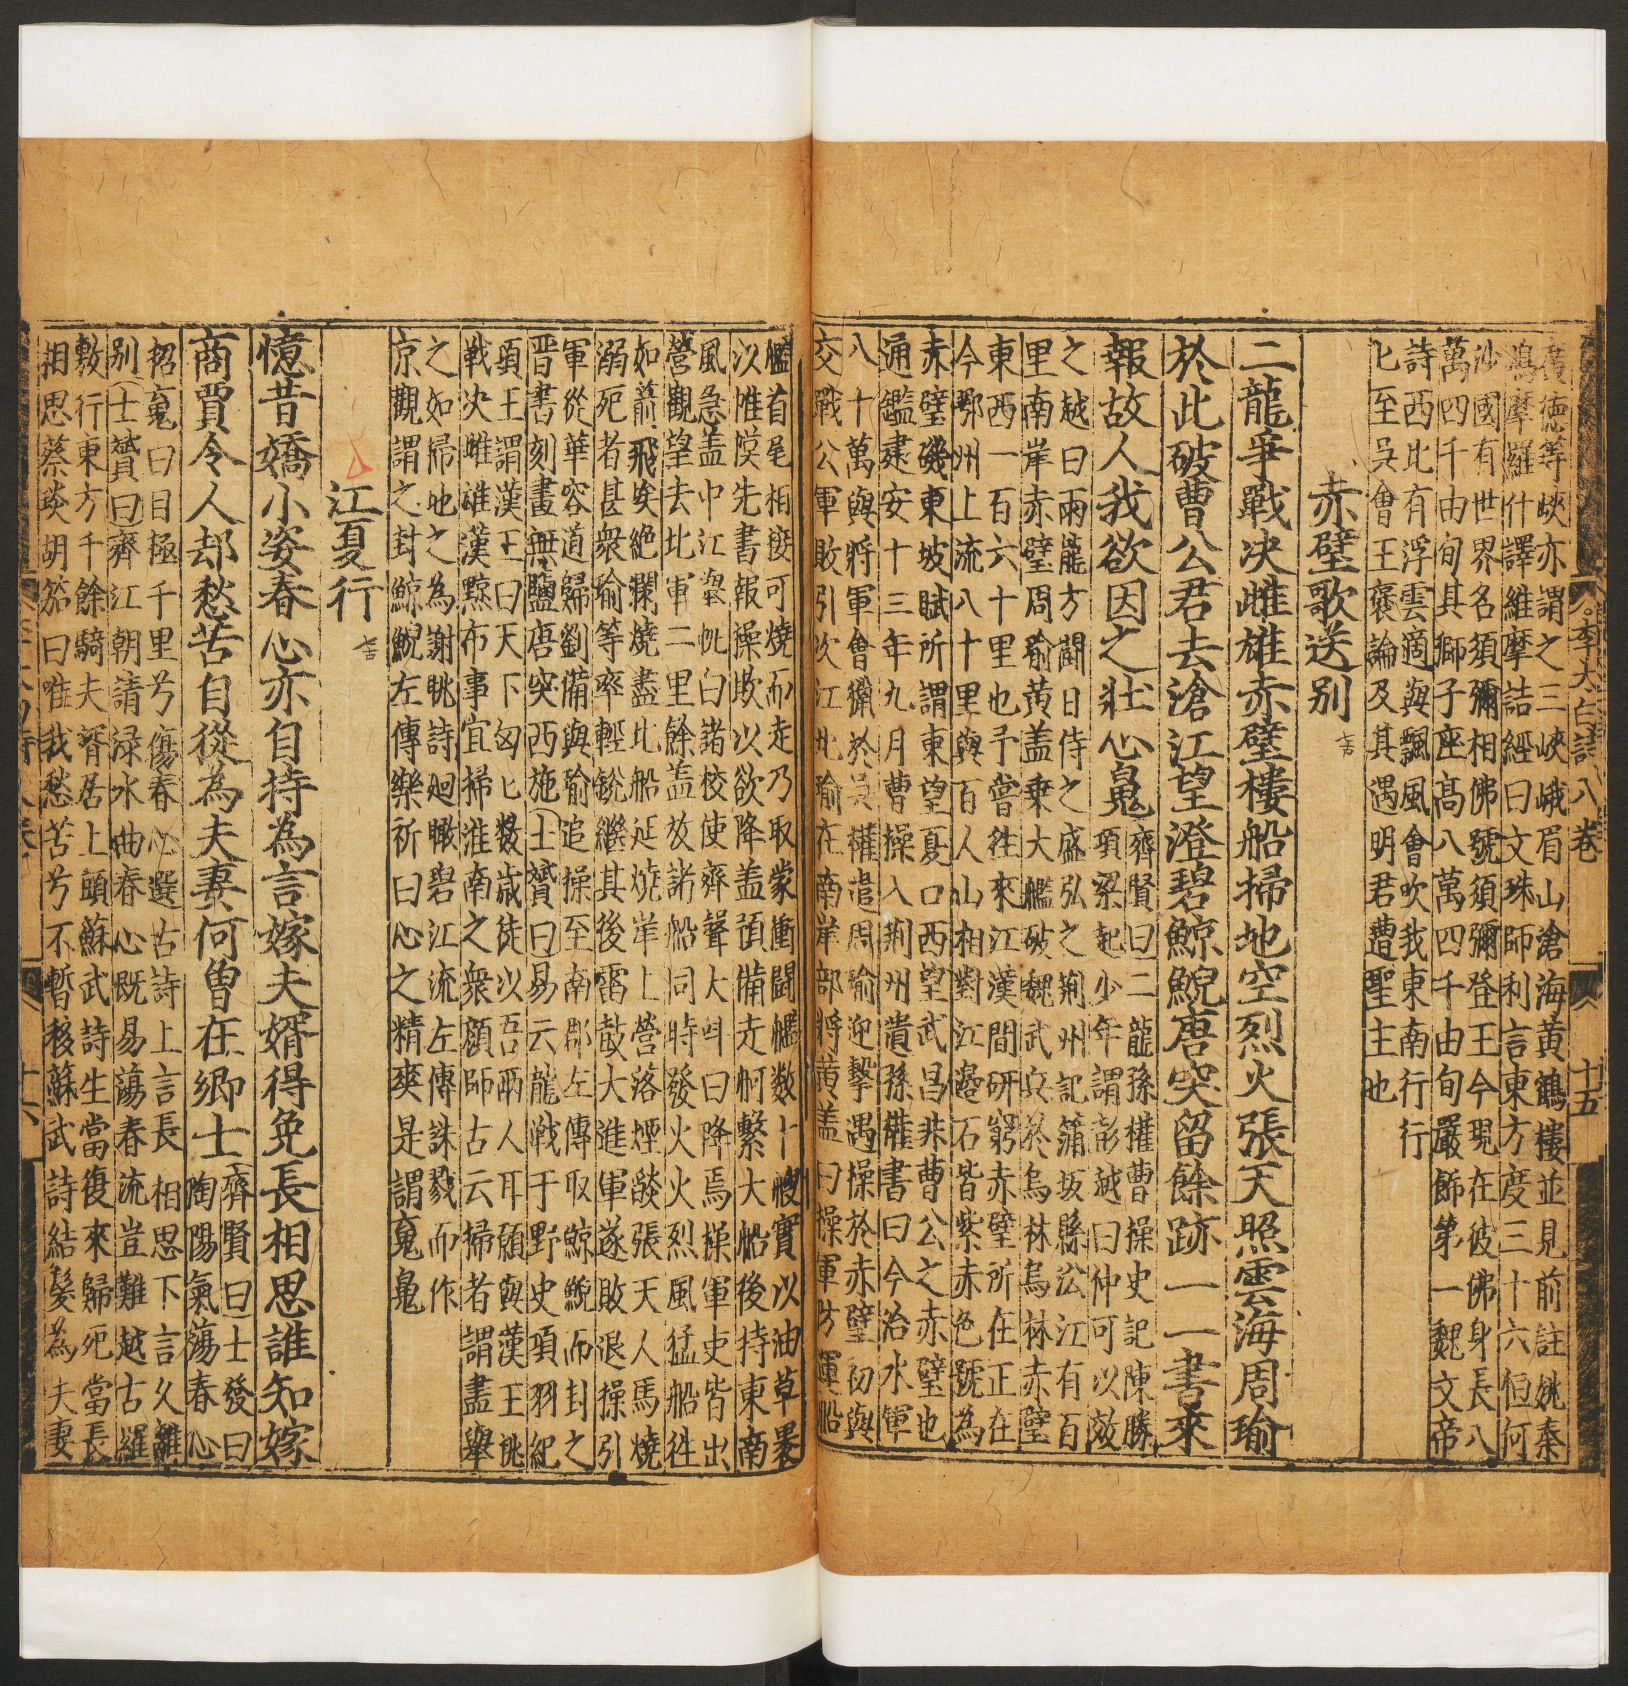 李太白詩八卷
十五
廣德等峽亦謂之三峽峨眉山滄海黃鶴樓並見前註姚秦
鳩摩羅什譯維摩詰經曰文珠師利言東方度三十六恒何
沙國有世界名須彌相佛號須彌登王今現在彼佛身長八
萬四千由旬其師子座高八萬四千由旬嚴飾第一魏文帝
詩西北有浮雲適與飄風會吹我東南行行
匕至吳會王褒論及其遇明君遭聖主也
赤壁歌送别
二龍爭戰决雌雄赤壁樓船掃地空烈火張天照雲海周瑜
於此破曹公君去滄江望澄碧鯨鯢唐突留餘跡一一書來
報故人我欲因之壯心䰟
齊賢曰二龍孫權曹操史記陳勝
項梁起少年謂彭越曰仲可以效
之越曰兩龍方鬪日侍之盛弘之荊州記蒲坂縣㳂江有百
里南岸赤壁周瑜黃蓋乗大艦破魏武兵於烏林烏林赤壁
東西一百六十里也予嘗徃來江漢間研窮赤壁所在正在
今鄂州上流八十里與百人山相對江邉石皆紫赤色號為
赤壁磯東坡賦所謂東望夏口西望武昌非曹公之赤壁也
通鑑建安十三年九月曹操入荊州遺孫權書曰今治水軍
八十萬與將軍會獵於吳權遣周瑜迎擊遇操於赤壁初與
交戰公軍敗引次江北瑜在南岸部將黃蓋曰操軍方運船
艦首尾相接可燒而走乃取蒙衝鬪艦数十艘實以油草裹
以帷幙先書報操欺以欲降蓋預備走舸繫大船後持東南
風急盖中江舉帆白諸校使齊聲大呌曰降焉操軍吏皆出
營觀望去北軍二里餘盖放諸船同時發火火烈風猛船徃
如箭飛埃絶爛燒盡北船延燒岸上營落煙燄張天人馬燒
溺死者甚衆瑜等率輕銳繼其後雷鼓大進軍遂敗退操引
軍從華容道歸劉備與瑜追操至南郡左傳取鯨鯢而封之
晉書刻畫無鹽唐突西施士贇曰易云龍戰于野史項羽紀
項王謂漢王曰天下匈匕数歲徒以吾兩人耳願與漢王挑
戰决雌雄漢黥布事宜掃淮南之衆顔師古云掃者謂盡舉
之如帚地之為謝眺詩廻瞰碧江流左傳誅戮而作
京觀謂之封鯨鯢左傳樂祈曰心之精爽是謂䰟䰟
江夏行
憶昔嬌小姿春心亦自持為言嫁夫壻得免長相思誰知嫁
商賈令人却愁苦自從為夫妻何曾在鄉土
齊賢曰士發曰
陶陽氣蕩春心
招䰟曰目極千里兮傷春心選古詩上言長相思下言久離
别士贇曰齊江朝請渌水曲春心既易蕩春流豈難越古羅
敷行東方千餘騎夫壻居上頭蘇武詩生當復來歸死當長
相思蔡琰胡笳曰唯我愁苦兮不暫移蘇武詩結髮為夫妻